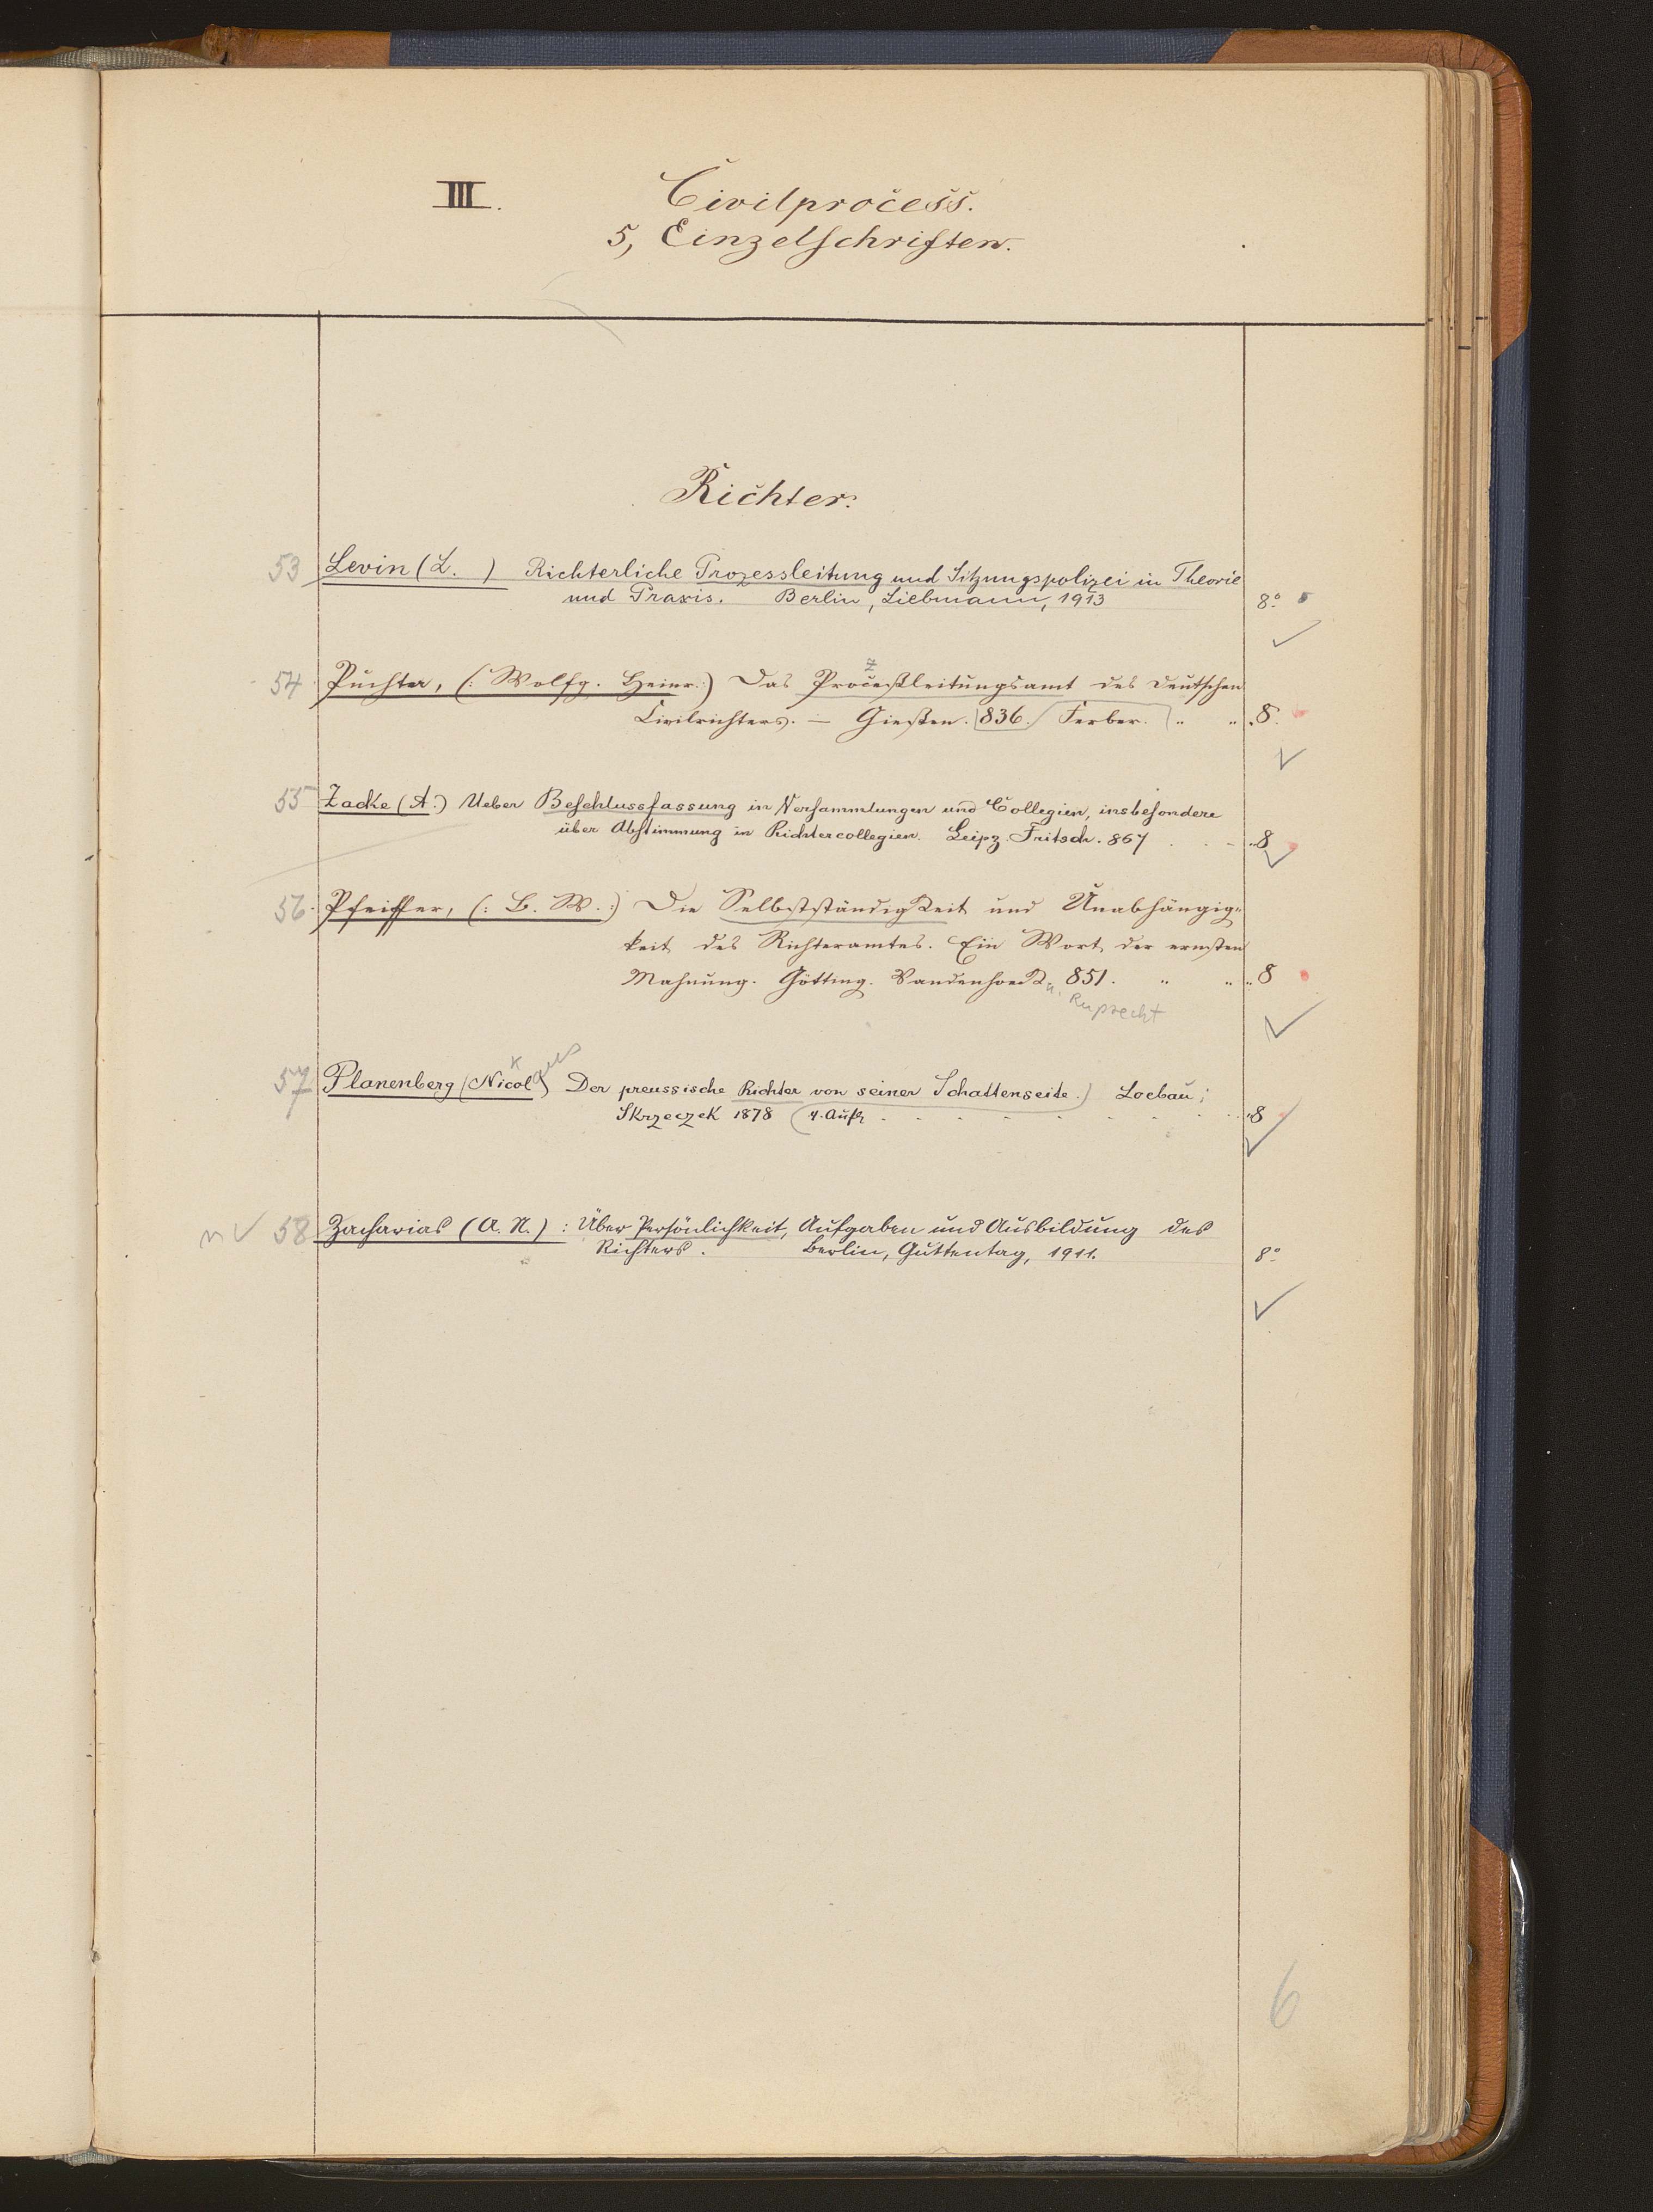 III. Civilprocess.
5, Einzelschriften.
Richter.
53 Levin (L. ) Richterliche Prozessleitung und Sitzungspolizei in Theorie
und Praxis. Berlin, Liebmann, 1913 8°
54 Puchta, (: Wolfg. Heinr. :) Das Proceßleitungsamt des deutschen
z
Civilrichters. – Gießen. 836. Ferber. „ „ „ 8.
55 Zacke (A.) Ueber Beschlussfassung in Versammlungen und Collegien, insbesondere
über Abstimmung in Richtercollegien. Leipz. Fritsch. 867 . . - „ 8
56. Pfeiffer, (: B. W. :) Die Selbstständigkeit und Unabhängig„
keit des Richteramtes. Ein Wort der ernsten
Mahnung. Götting. Vandenhoeck 851. „ „ „ 8
u. Ruprecht
57 Planenberg (Nicol) Der preussische Richter von seiner Schattenseite. Loebau;
k aus
Skrzeczek 1878 4. Aufl. . . . . . . . . „ 8
n ✓ 58 Zacharias (A. N.) : Über Persönlichkeit, Aufgaben und Ausbildung des
Richters. Berlin, Guttentag, 1911. 8°
6